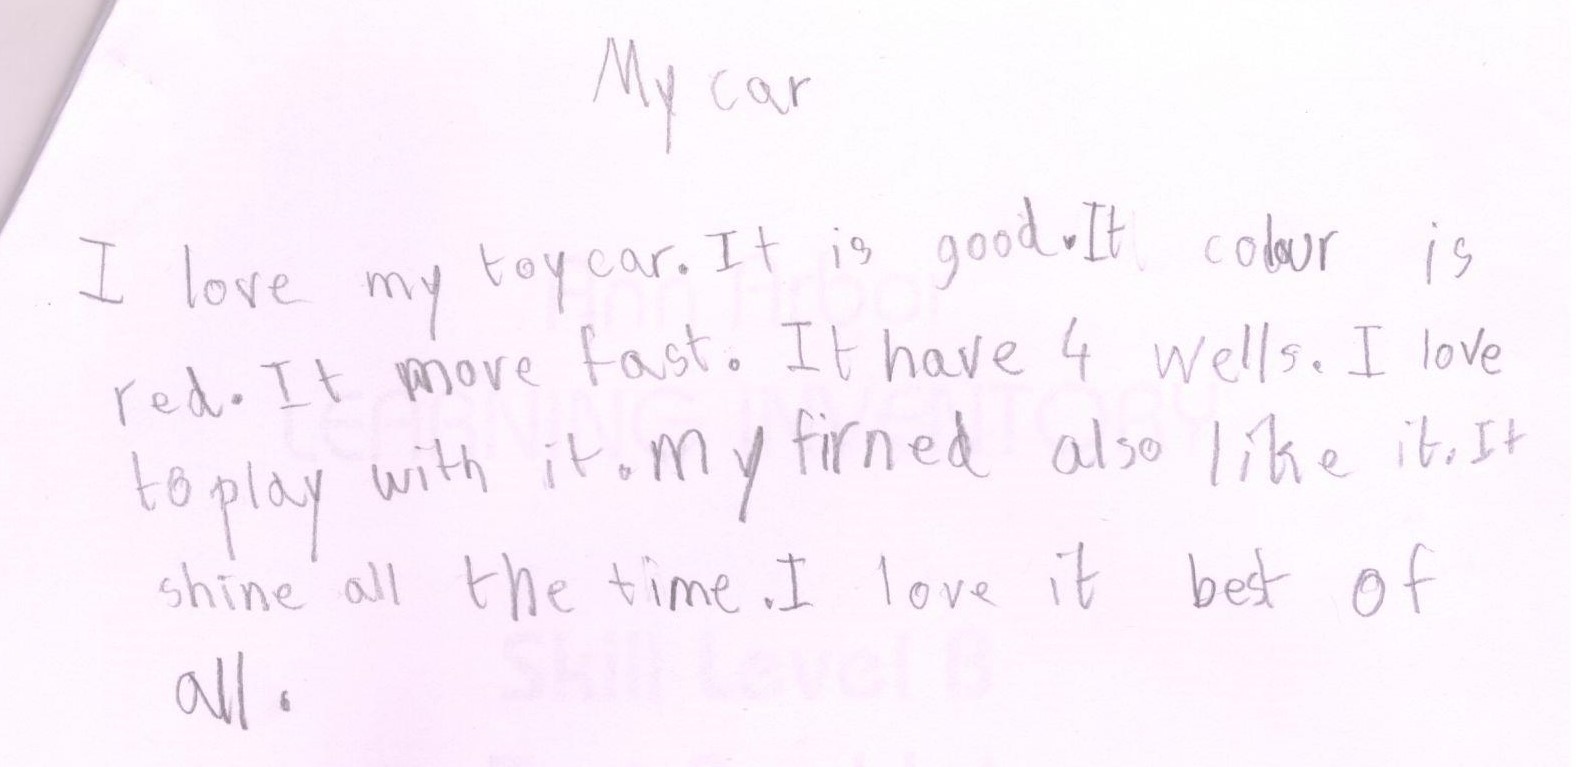 My car
I love my toy car. It is good. It colour is
red. It move fast. It have 4 wells. I love
to play with it. My firned also like it. It
shine all the time. I love it best of
all.
Ann Arbor
LEARNING INVENTORY
Skill Level B